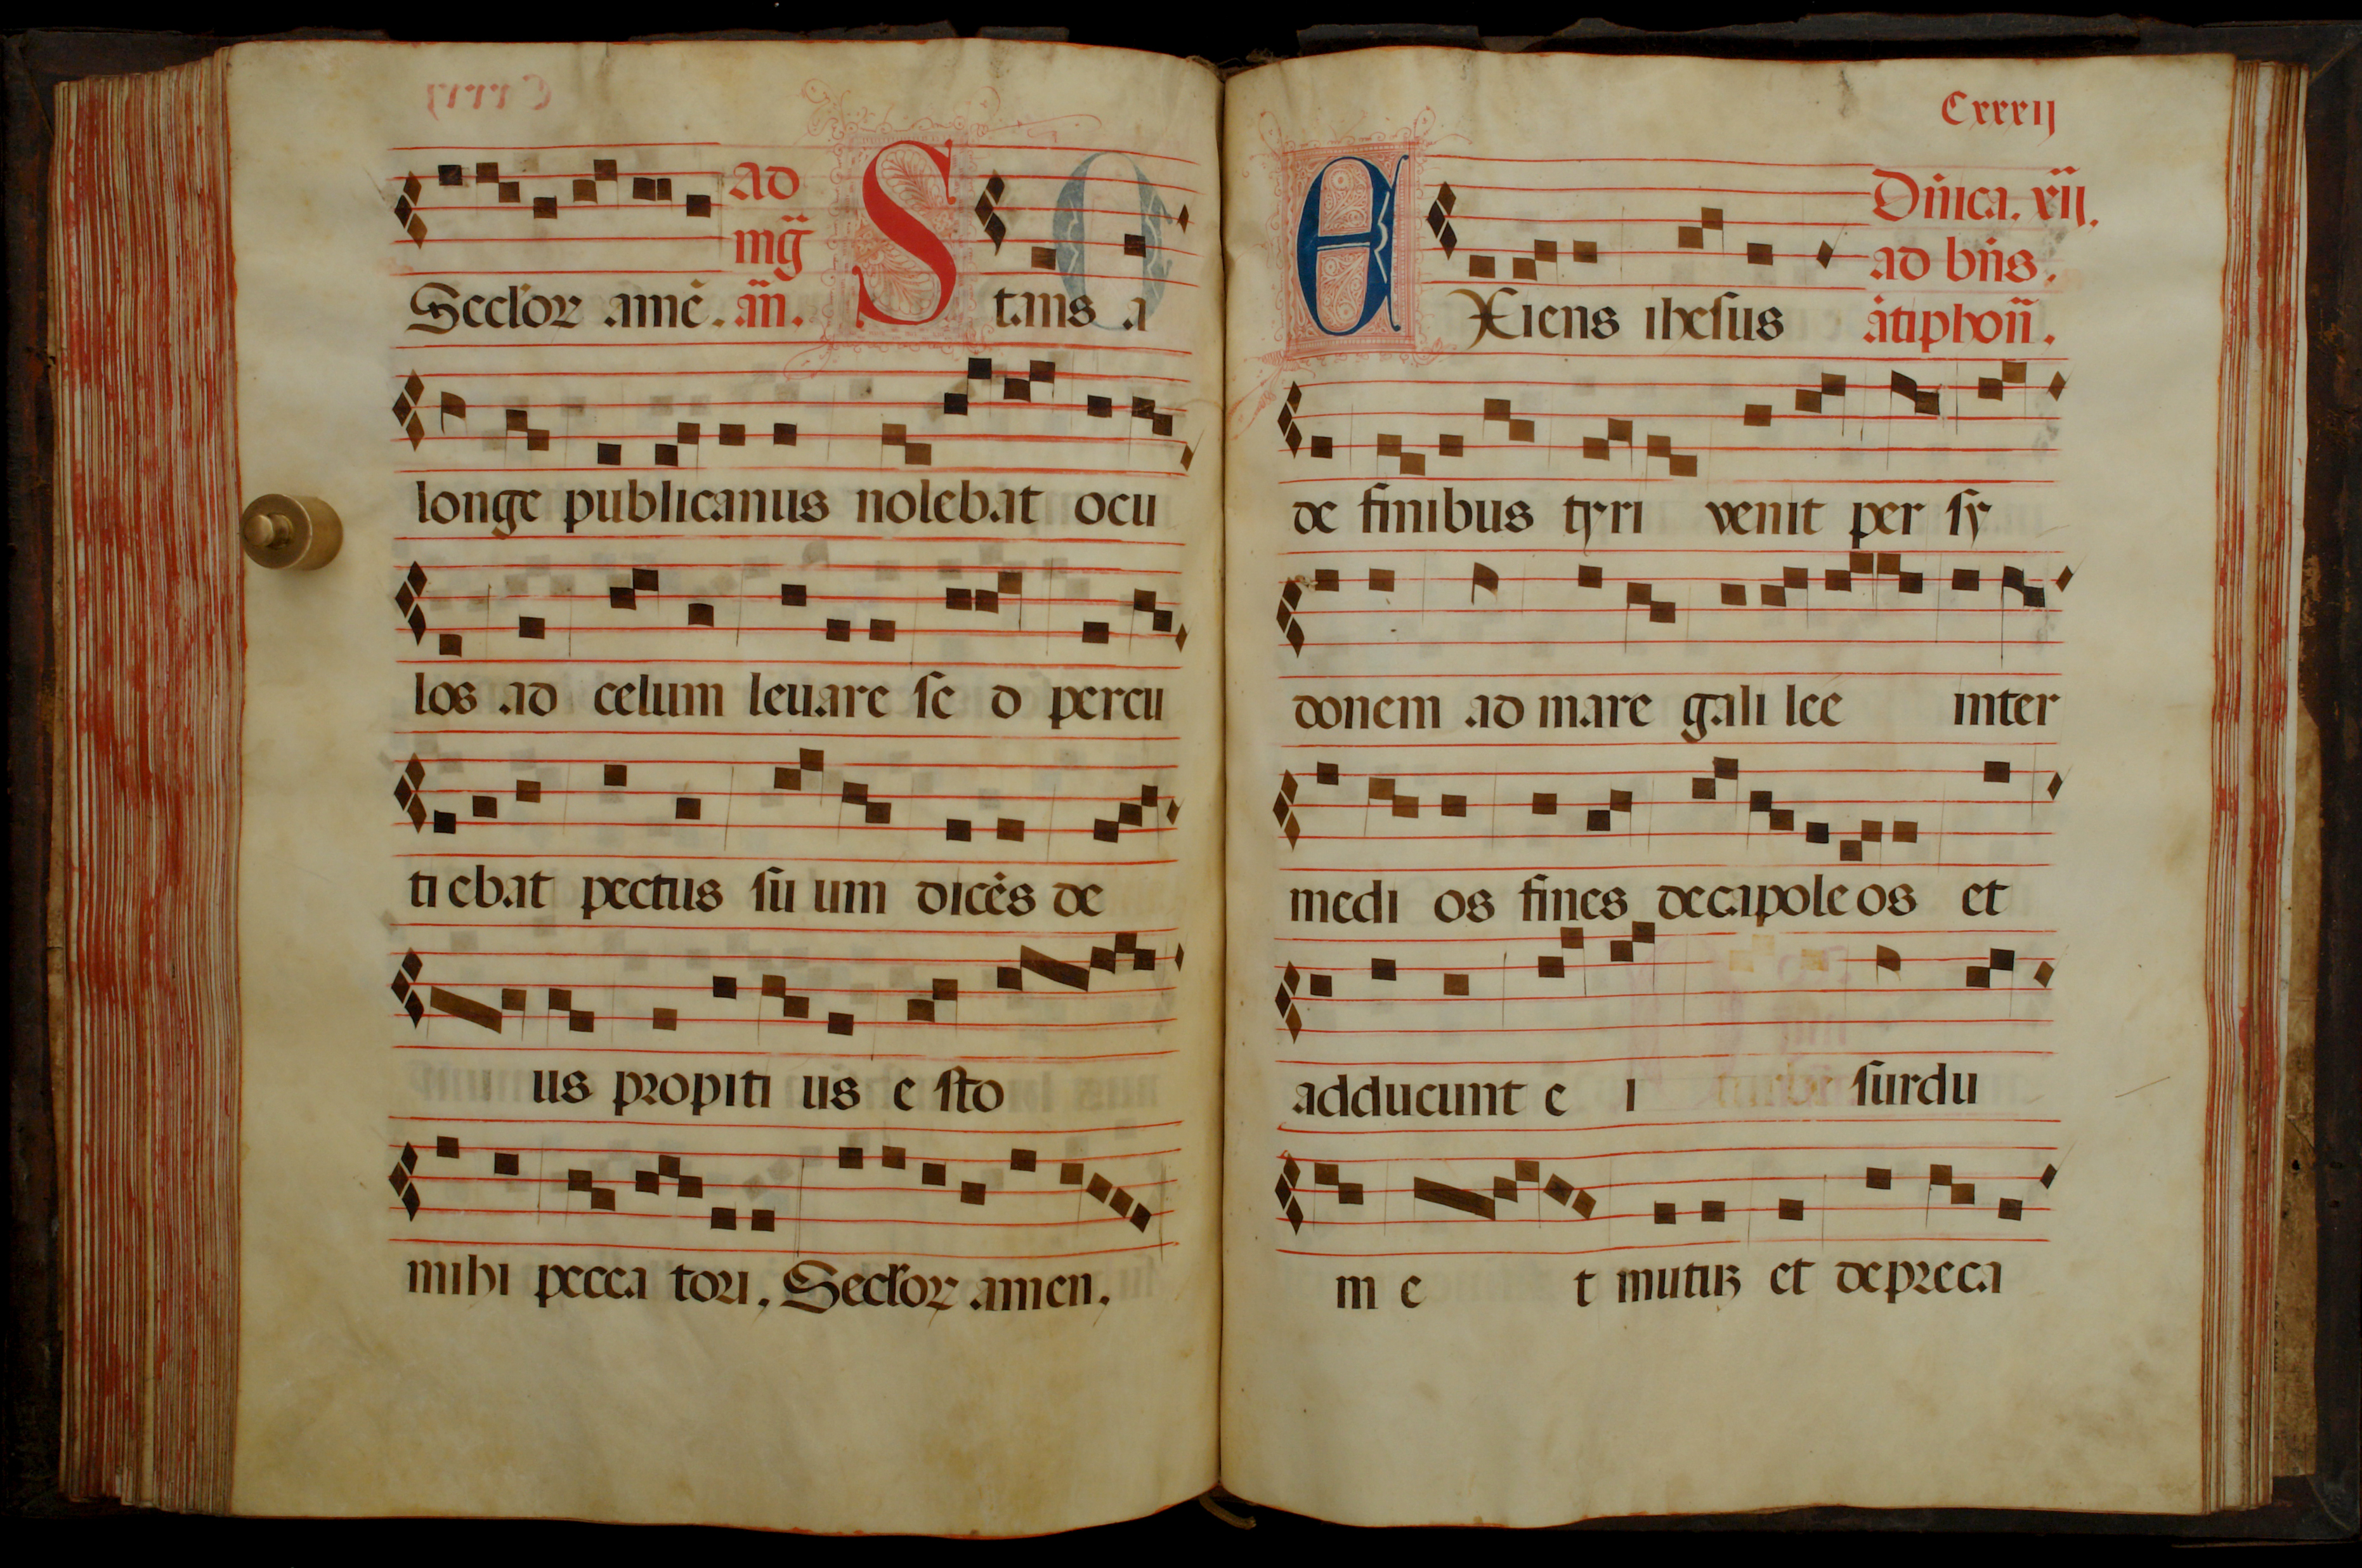 ad
mḡ
Secl'oꝛ amē. añ. Stans a
longe publicanus nolebat ocu
los ad celum leuare se d percu
ti ebat pectus su um dicēs de
us pꝛopiti us e sto
mihi pecca toꝛi. Secl'oꝛ amen.
Cxxxij
Dñica. xij.
ad bñs.
EXiens ihesus ātiphoñ.
de finibus tyri venit per sy
donem ad mare gali lee inter
medi os fines decapole os et
adducunt e i surdu
m e t mutuꝫ et depꝛeca